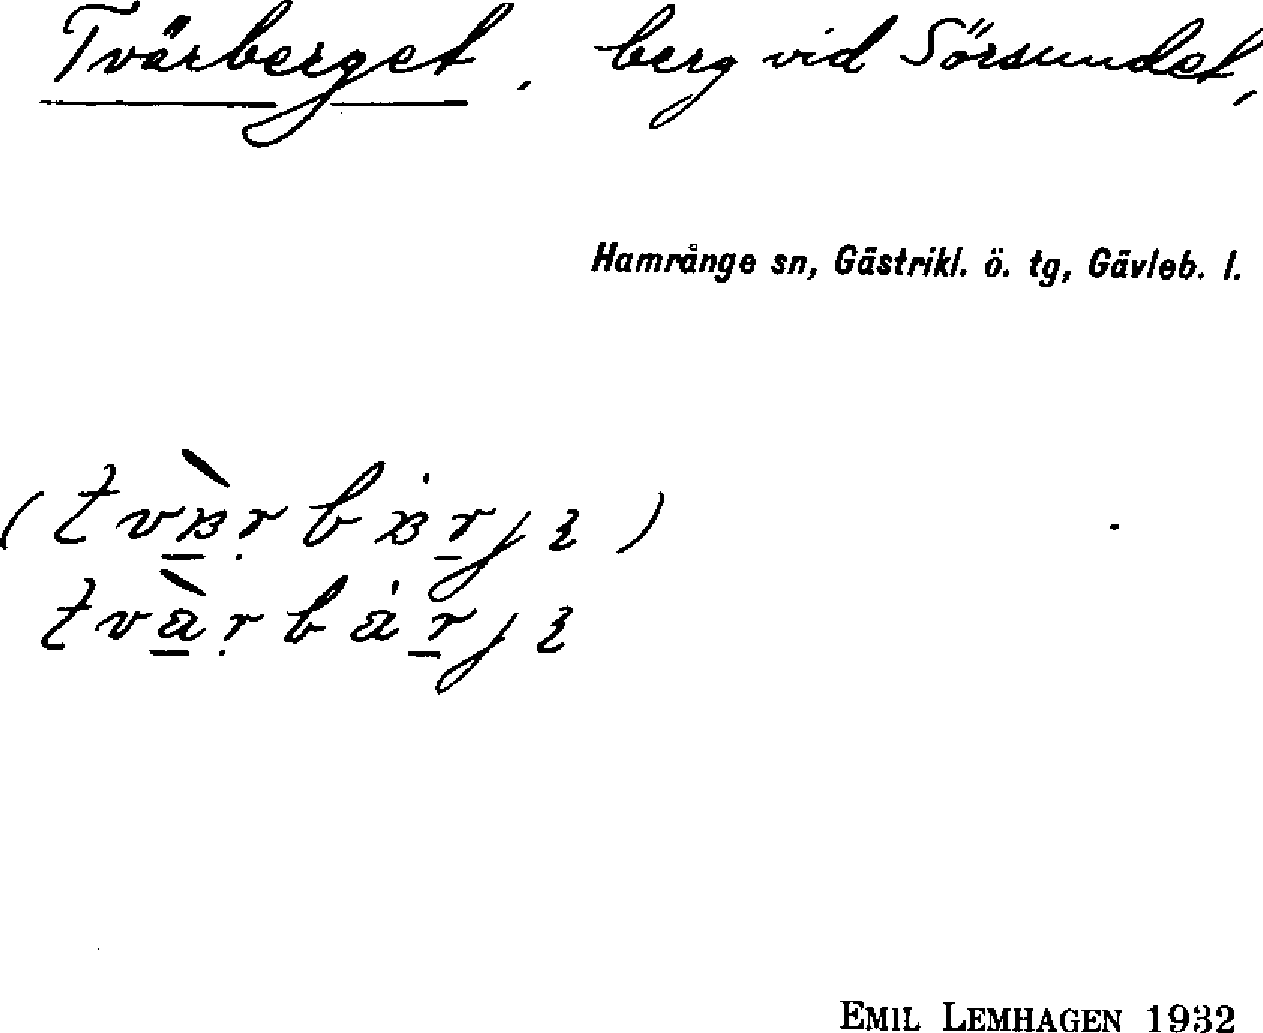 Tvärberget, berg vid Sörsundet,
Hamrånge sn, Gästrikl. ö. tg, Gävleb. l.
EMIL LEMHAGEN 1932